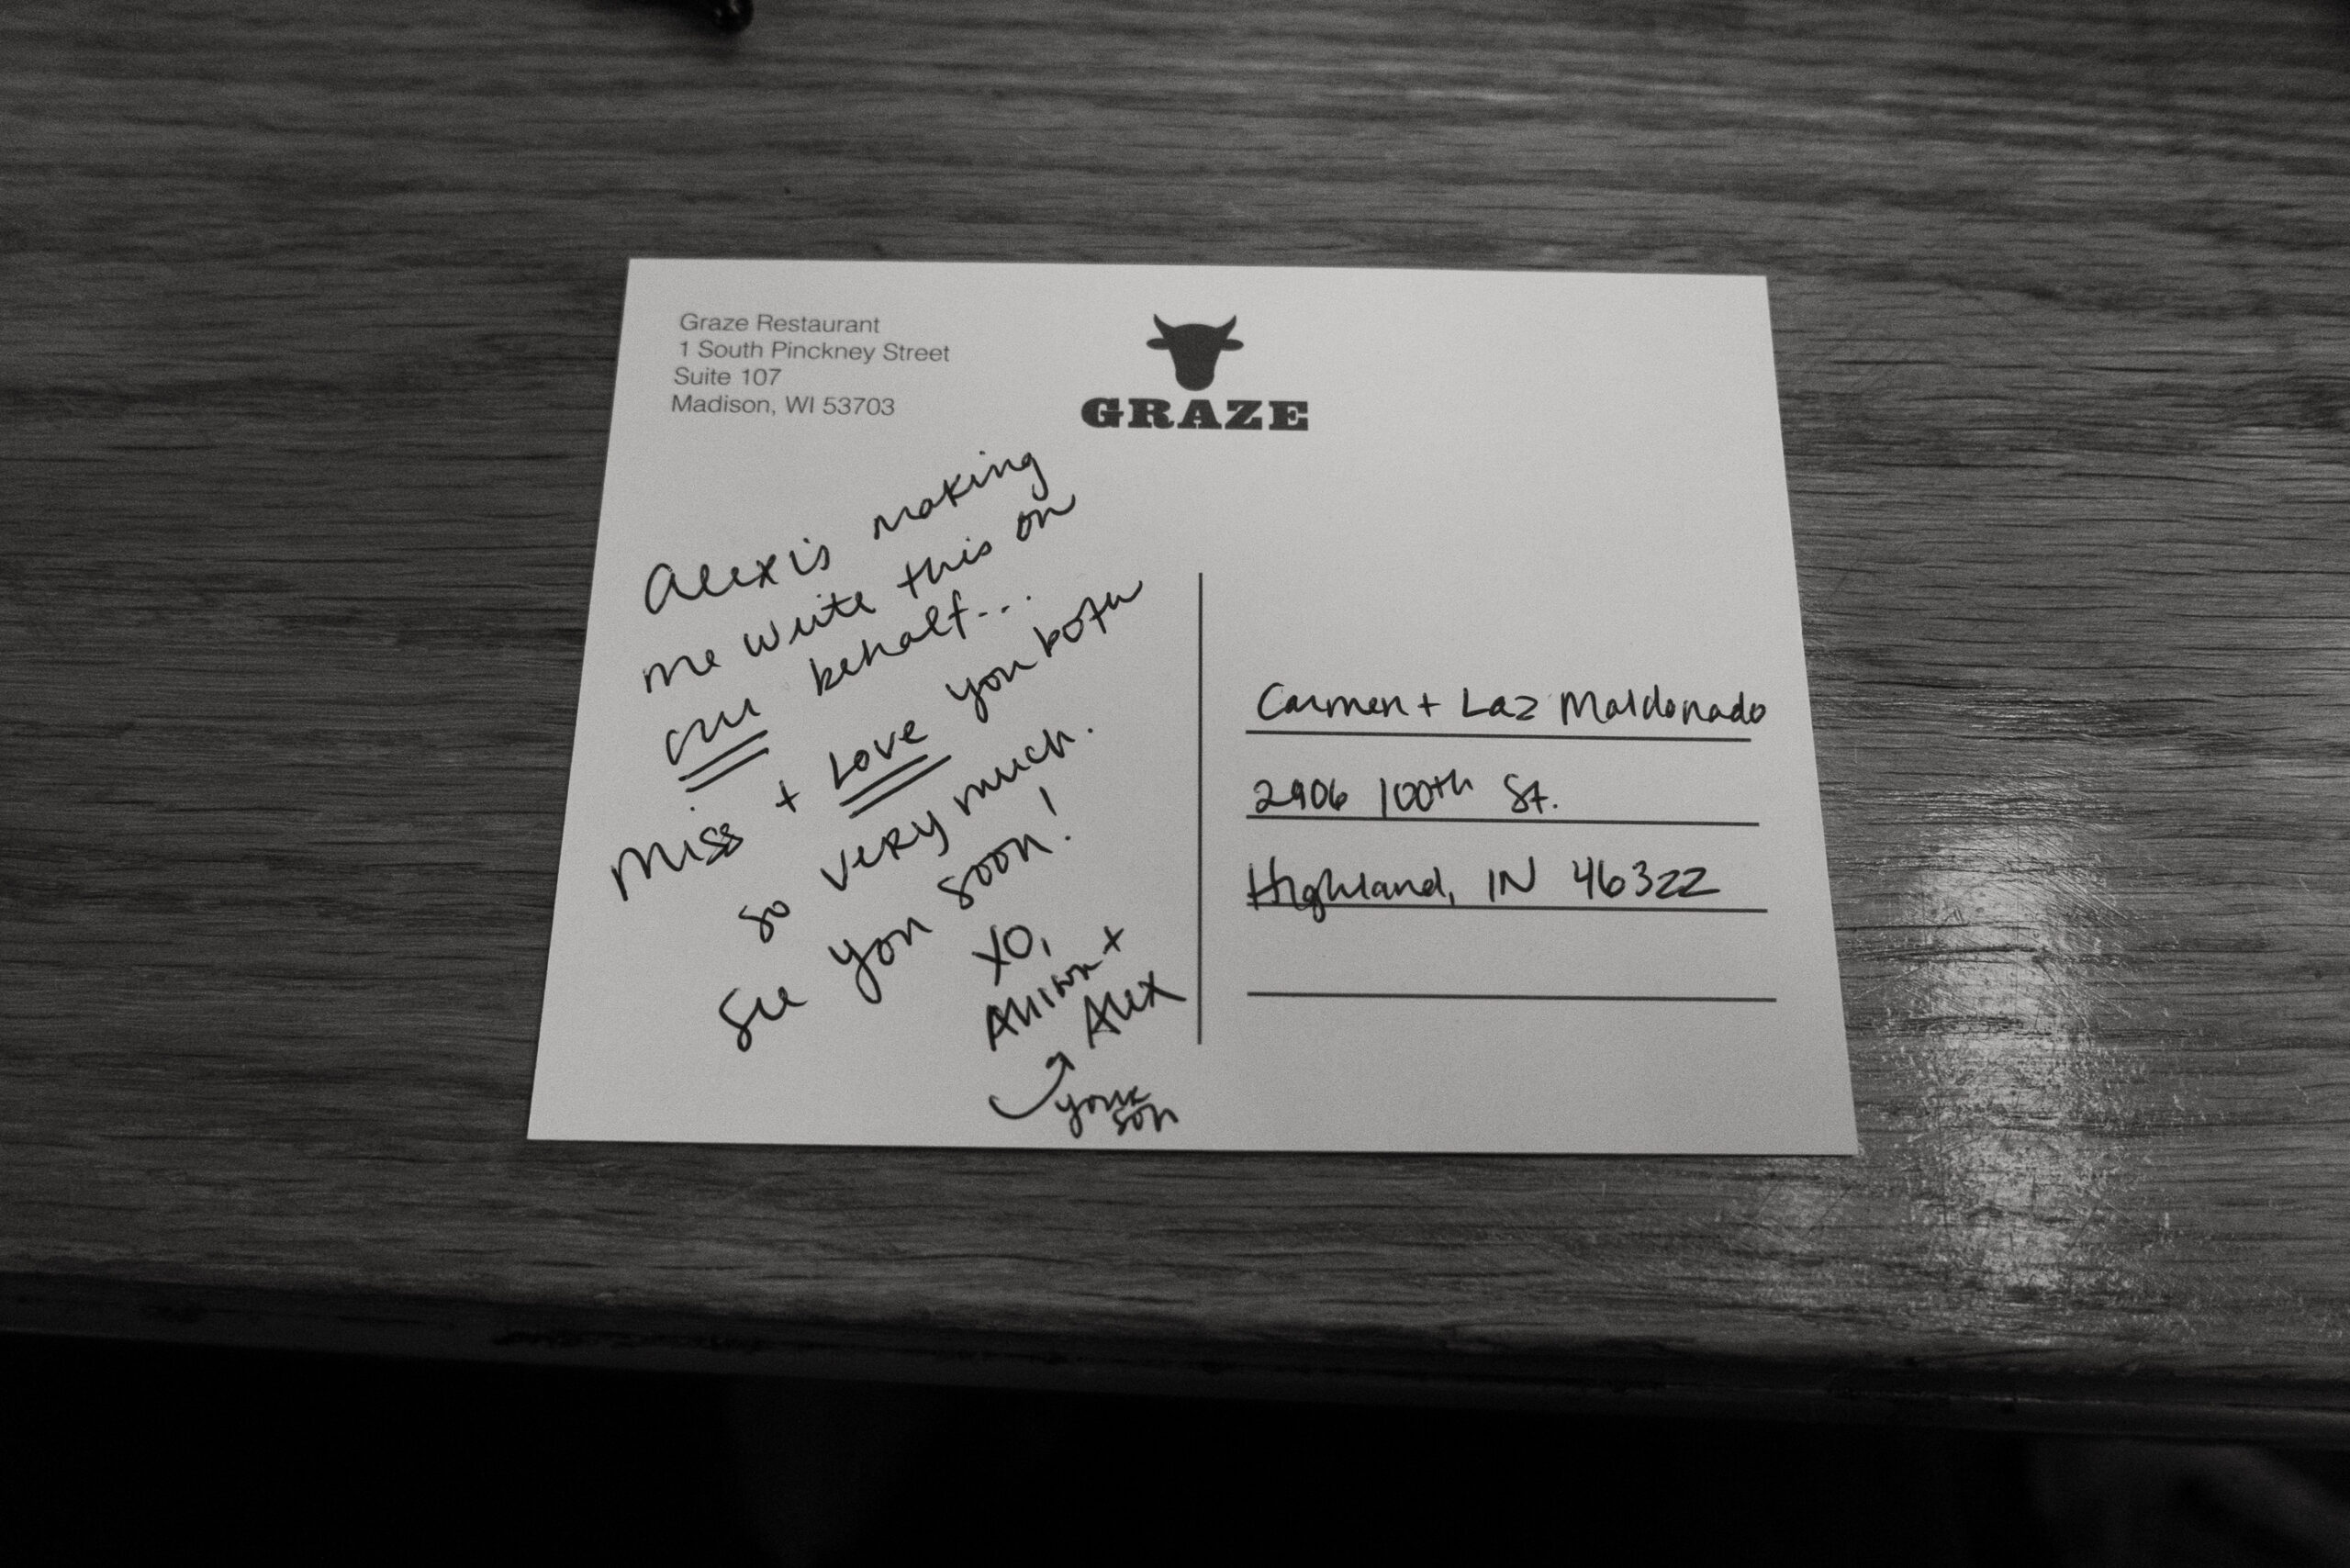 Graze Restaurant
1 South Pinckney Street
Suite 107
Madison, WI 53703
GRAZE
Alex is making
me write this on
our behalf...
Miss + Love you both
so very much.
See you soon!
XO,
Allison +
Alex
your
son
Carmen + Laz Maldonado
2906 100th St.
Highland, IN 46322